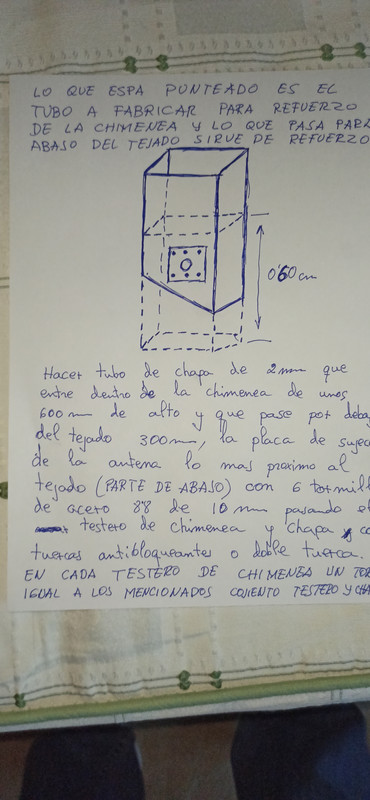 LO QUE ESPA PUNTEADO ES EL
TUBO A FABRICAR PARA REFUERZO
DE LA CHIMENEA Y LO QUE PASA PARA
ABAJO DEL TEJADO SIRVE DE REFUERZO
0'60 cm
Hacer tubo de chapa de 2 mm que
entre dentro de la chimenea de unos
600 mm de alto y que pase por deba
del tejado 300 mm, la placa de sujec
de la antena lo mas proximo al
tejado (PARTE DE ABAJO) con 6 tornill
de acero 8'8 de 10 mm pasando el
testero de chimenea y chapa y co
tuercas antibloqueantes o doble tuerca.
EN CADA TESTERO DE CHIMENEA UN TOR
IGUAL A LOS MENCIONADOS COJIENTO TESTERO Y CHA